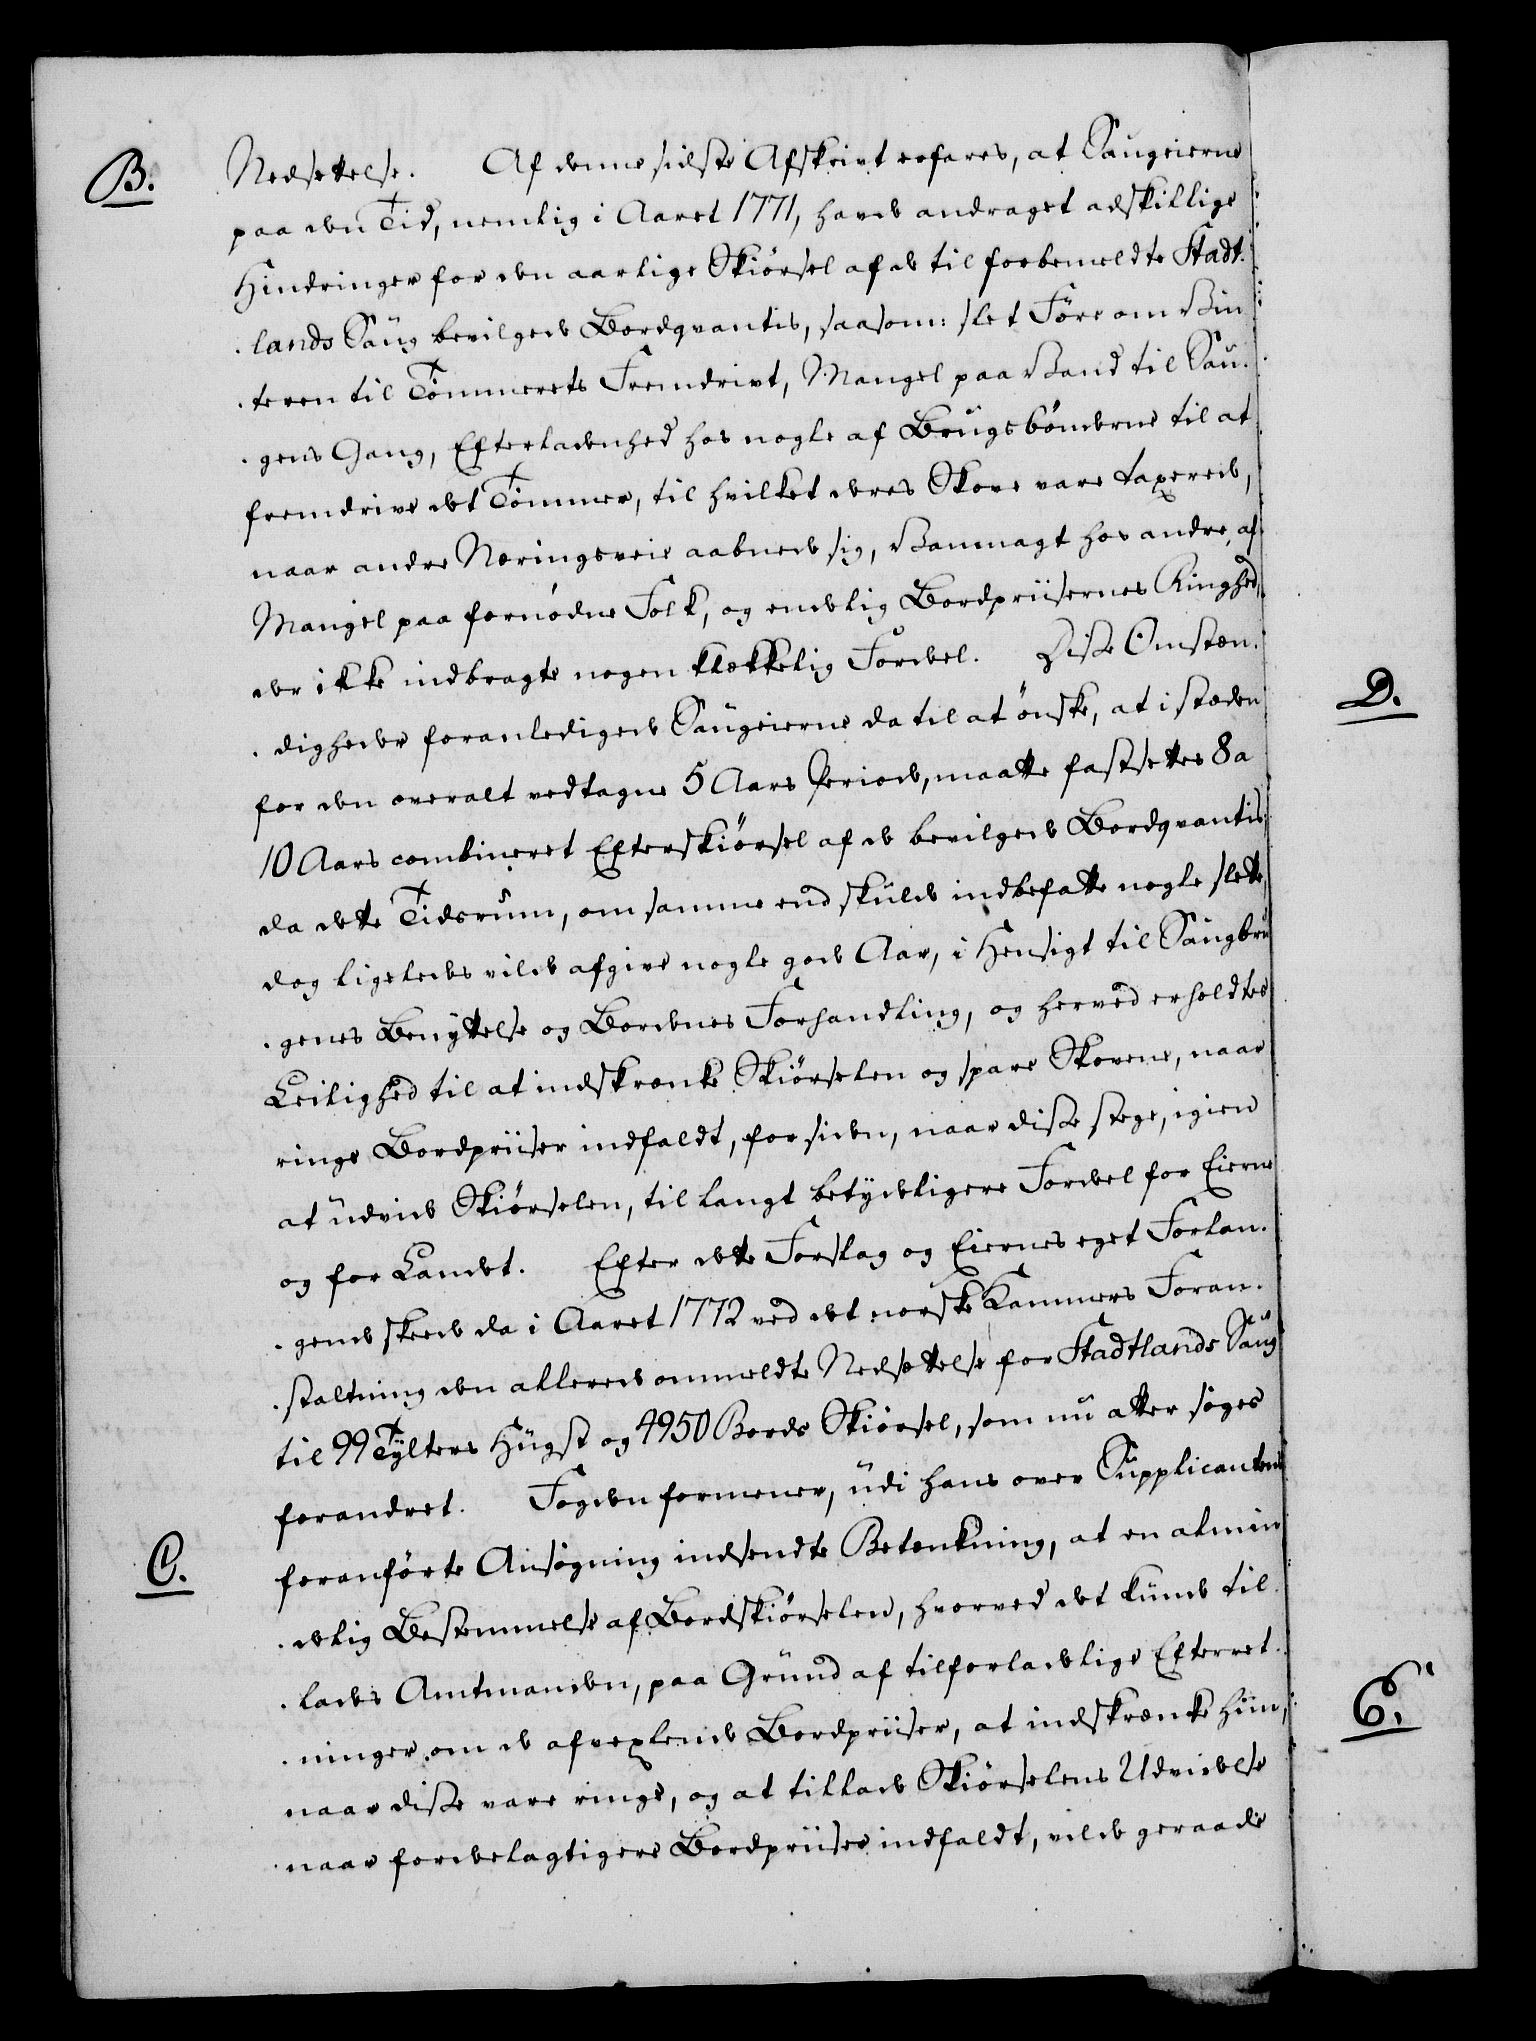 B.
Nedsettelse. Af denne sidste Afskrivt erfares, at Saugeierne
paa den Tid, nemlig i Aaret 1771, havde andraget adskillige
Hindringer for den aarlige Skiörsel af de til forbemeldte Stadt-
lands Saug bevilgede Bordqvantis, saasom: slet Före om Vin
teren til Tömmerets Fremdrivt, Mangel paa Vand til Sau-
gens Gang, Efterladenhed hos nogle af Brugsbönderne til at
fremdrive det Tömmer, til hvilket deres Skove vare taxerede,
naar andre Næringsveie aabnede sig, Vanmagt hos andre, af
Mangel paa fornödne Folk, og endelig Bordpriisernes Ringhed,
der ikke indbragte nogen klækkelig Fordel. Disse Omstæn-
digheder foranledigede Saugeierne da til at önske, at i stæden
for den overalt vedtagne 5 Aars Periode, maatte fastsettes 8 a
10 Aars combineret Efterskiörsel af de bevilgede Bordqvantis,
da dette Tidsrum, om samme end skulde indbefatte nogle slette,
dog ligeledes vilde afgive nogle gode Aar, i Hensigt til Saugbru
genes Benyttelse og Bordenes Forhandling, og herved erholdtes
Leilighed til at indskrænke Skiörselen og spare Skovene, naar
ringe Bordpriiser indfaldt, for siden, naar disse stege, igien
at udvide Skiörselen, til langt betydeligere Fordel for Eierne
og for Landet. Efter dette Forslag og Eiernes eget Forlan-
gende skede da i Aaret 1772 ved det norske Kammers Foran-
staltning den allerede ommeldte Nedsættelse for Stadtlands Saug
til 99 Tylters Hugst og 4950 Bords Skiörsel, som nu atter söges
forandret. Fogden formener, udi hans over Supplicantens
C.
foranförte Ansögning indsendte Betænkning, at en almin
delig Bestemmelse af Bordskiörselen, hvorved det kunde til-
lades Amtmanden, paa Grund af tilforladelige Efterret-
ninger om de afvexlende Bordpriiser, at indskrænke hiin,
naar disse vare ringe, og at tillade Skiörselens Udvidelse
naar fordelagtigere Bordpriiser indfaldt, vilde geraade
D.